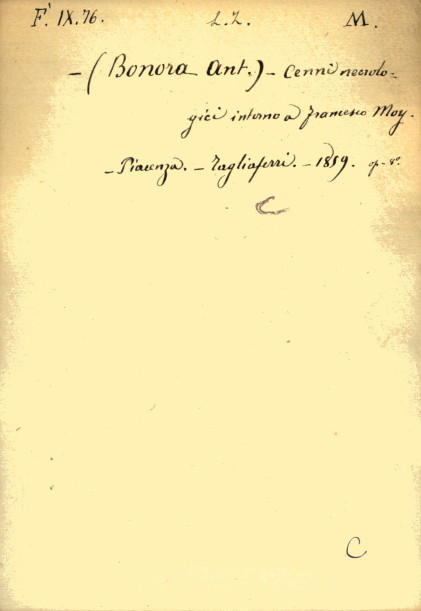 F' IX. 76. L. Z. M.
– (Bonora Ant.) – Cenni necrolo-
gici intorno a Francesco Moy.
– Piacenza. – Tagliaferri. – 1859. op-8º
C
C